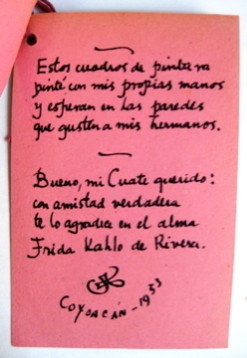 Estos cuadros de pintura
pinté con mis propias manos
y esperan en las paredes
que gusten a mis hermanos.
Bueno, mi Cuate querido:
con amistad verdadera
te lo agradece en el alma
Frida Kahlo de Rivera.
COYOACÁN-1953